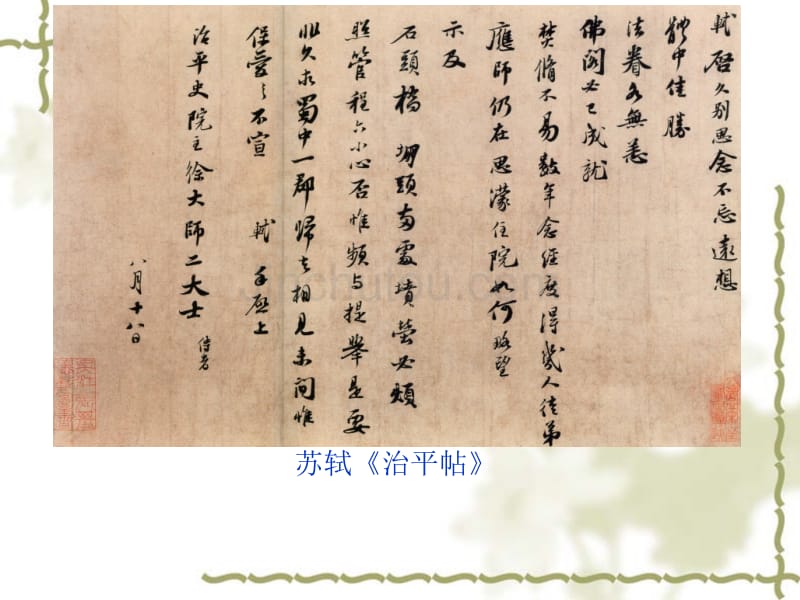 軾啓久別思念不忘遠想
體中佳勝
法眷各無恙
佛閣必已成就
焚脩不易數年念經度得幾人徒弟
應師仍在思濛住院如何略望
示及
石頭橋 堋頭兩處墳塋必煩
照管程六小心否惟頻与提舉是要
非久求蜀中一郡歸去相見未間惟
保愛之不宣 軾手啓上
治平史院主徐大師二大士 侍者
八月十八日
苏轼《治平帖》